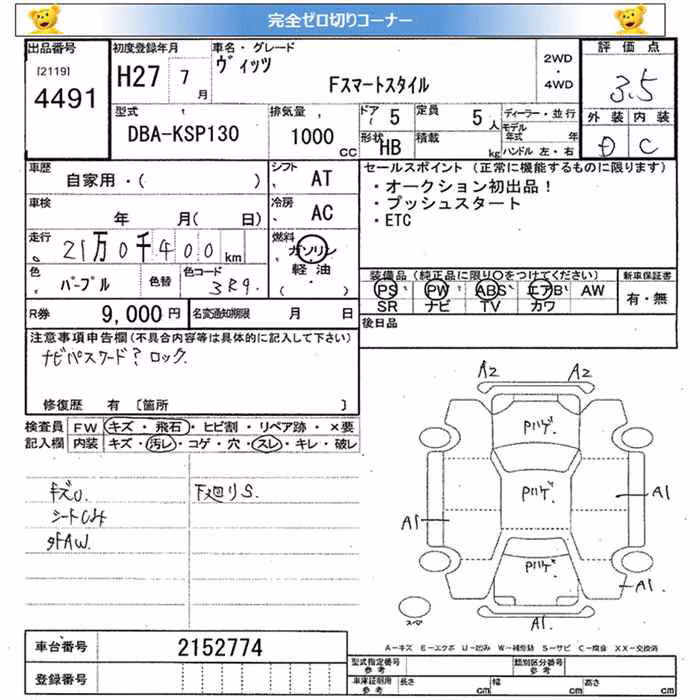 完全ゼロ切りコーナー
出品番号
[2119]
4491
初度登録年月
H27 7月
車名・グレード
ヴィッツ
Fスマートスタイル
2WD
・
4WD
評価点
3.5
外装 内装
D C
型式
DBA-KSP130
排気量
1000 CC
ドア
5
形状
HB
定員
5人
積載
kg
ディーラー・並行
モデル年式 年
ハンドル 左・右
車歴
自家用・( )
シフト
AT
車検
年 月( 日)
冷房
AC
走行
21万0千400km
燃料
ガソリン
軽油
( )
色
パープル
色替
色コード
3R9
R券
9,000円
名変通知期限 月 日
セールスポイント(正常に機能するものに限ります)
・オークション初出品!
・プッシュスタート
・ETC
装備品(純正品に限り○をつけてください)
PS PW ABS エアB AW
SR ナビ TV カワ
新車保証書
有・無
後日品
注意事項申告欄(不具合内容等は具体的に記入して下さい)
ナビパスワード? ロック.
修復歴 有 [箇所 ]
検査員記入欄
FW キズ・飛石・ヒビ割・リペア跡・×要
内装 キズ・汚レ・コゲ・穴・スレ・キレ・破レ
下廻りS.
シートしみ
外AW.
A2 A2
Pハゲ.
Pハゲ.
Pハゲ.
A1
A1
A1
A1.
スペア
A-キズ E-エクボ U-凹み W-補修跡 S-サビ C-腐食 XX-交換済
車台番号
2152774
登録番号
型式指定番号
参考
類別区分番号
参考
車庫証明用
参考
長さ cm
幅 cm
高さ cm